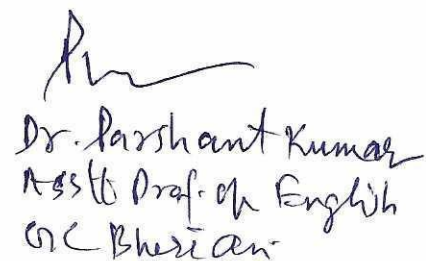 Dr. Parshant Kumar
Asstt Prof. of English
GC Bherian